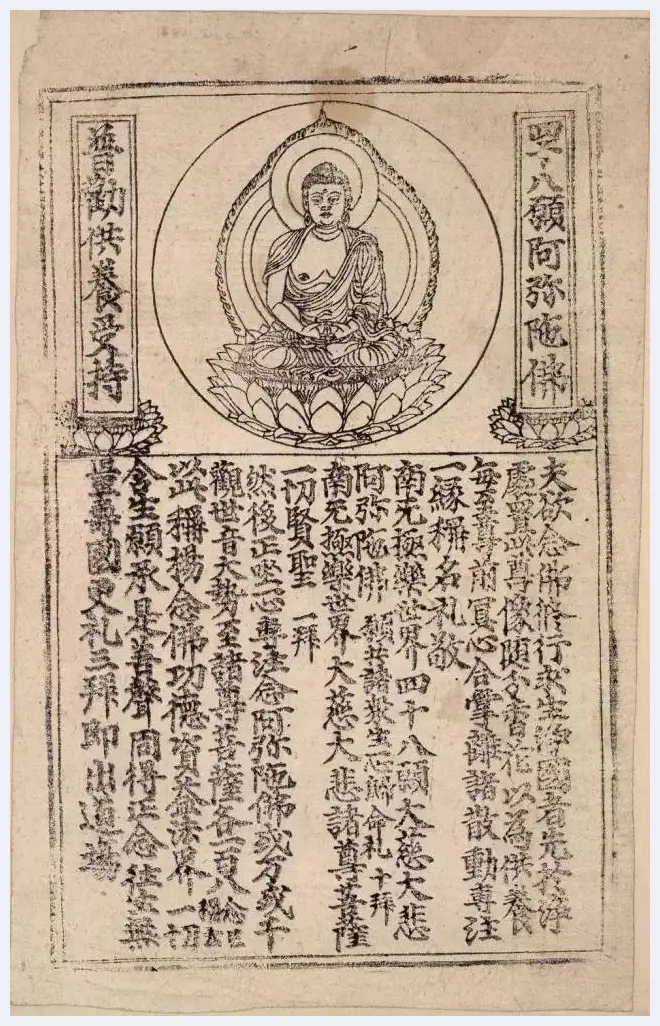 四十八願阿弥陁佛
普勸供養受持
夫欲念佛修行求生浄國者先於浄
處置此尊像随分香花以為供養
每至尊前冥心合掌離諸散動專注
一縁稱名礼敬
南无極樂世界四十八願大慈大悲
阿弥陁佛 願共諸衆生一心歸命礼十拜
南无極樂世界大慈大悲諸尊菩薩
一切賢聖 一拜
然後正坐一心專注念阿弥陁佛或万或千
觀世音大勢至諸尊菩薩各一百八念已
以此稱揚念佛功德資益法界一切
含生願承是善聲同得正念往生無
量壽國更礼三拜即出道場